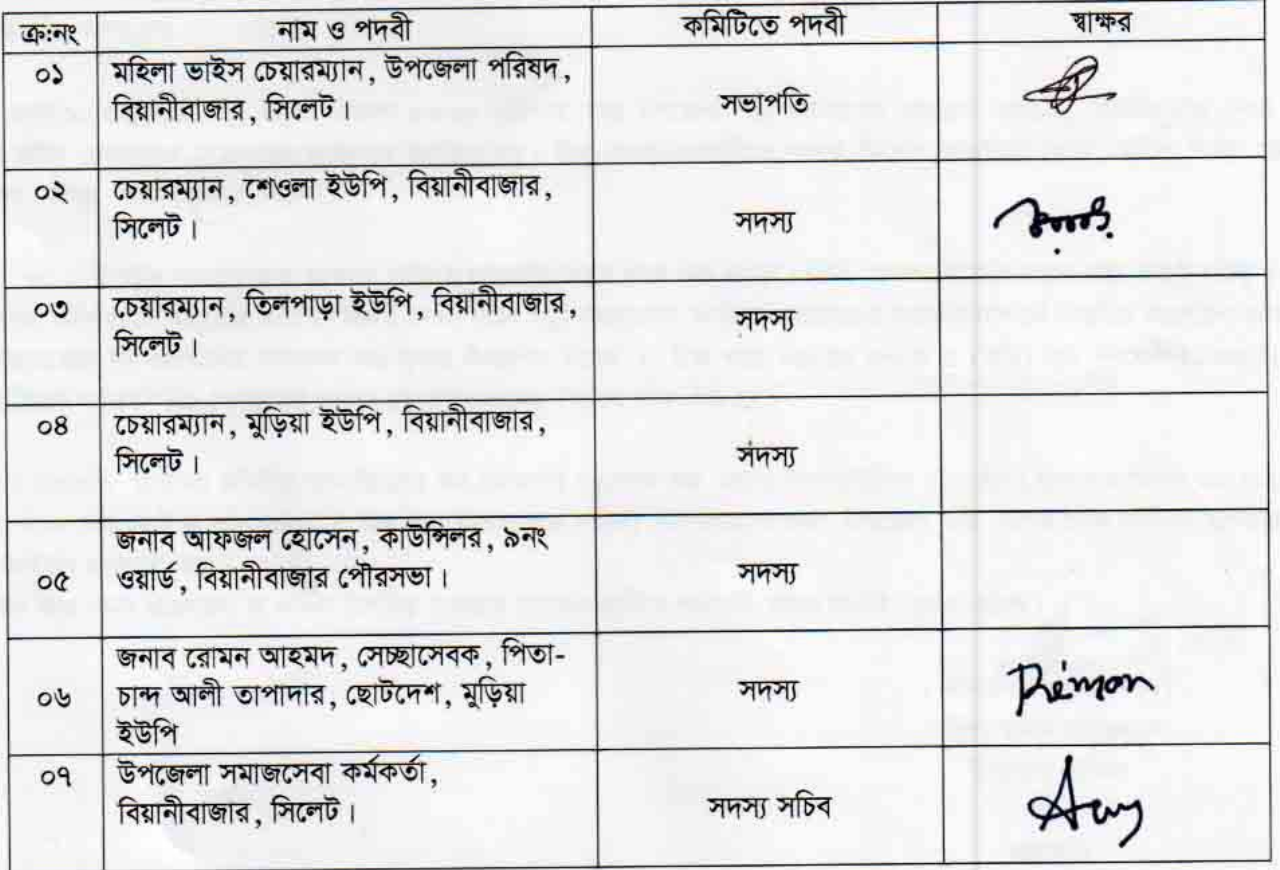 ক্র:নং নাম ও পদবী কমিটিতে পদবী স্বাক্ষর
০১ মহিলা ভাইস চেয়ারম্যান, উপজেলা পরিষদ,
বিয়ানীবাজার, সিলেট। সভাপতি
০২ চেয়ারম্যান, শেওলা ইউপি, বিয়ানীবাজার,
সিলেট। সদস্য
০৩ চেয়ারম্যান, তিলপাড়া ইউপি, বিয়ানীবাজার,
সিলেট। সদস্য
০৪ চেয়ারম্যান, মুড়িয়া ইউপি, বিয়ানীবাজার,
সিলেট। সদস্য
জনাব আফজল হোসেন, কাউন্সিলর, ৯নং
০৫ ওয়ার্ড, বিয়ানীবাজার পৌরসভা। সদস্য
জনাব রোমন আহমদ, সেচ্ছাসেবক, পিতা-
০৬ চান্দ আলী তাপাদার, ছোটদেশ, মুড়িয়া সদস্য Rémon
ইউপি
০৭ উপজেলা সমাজসেবা কর্মকর্তা,
বিয়ানীবাজার, সিলেট। সদস্য সচিব